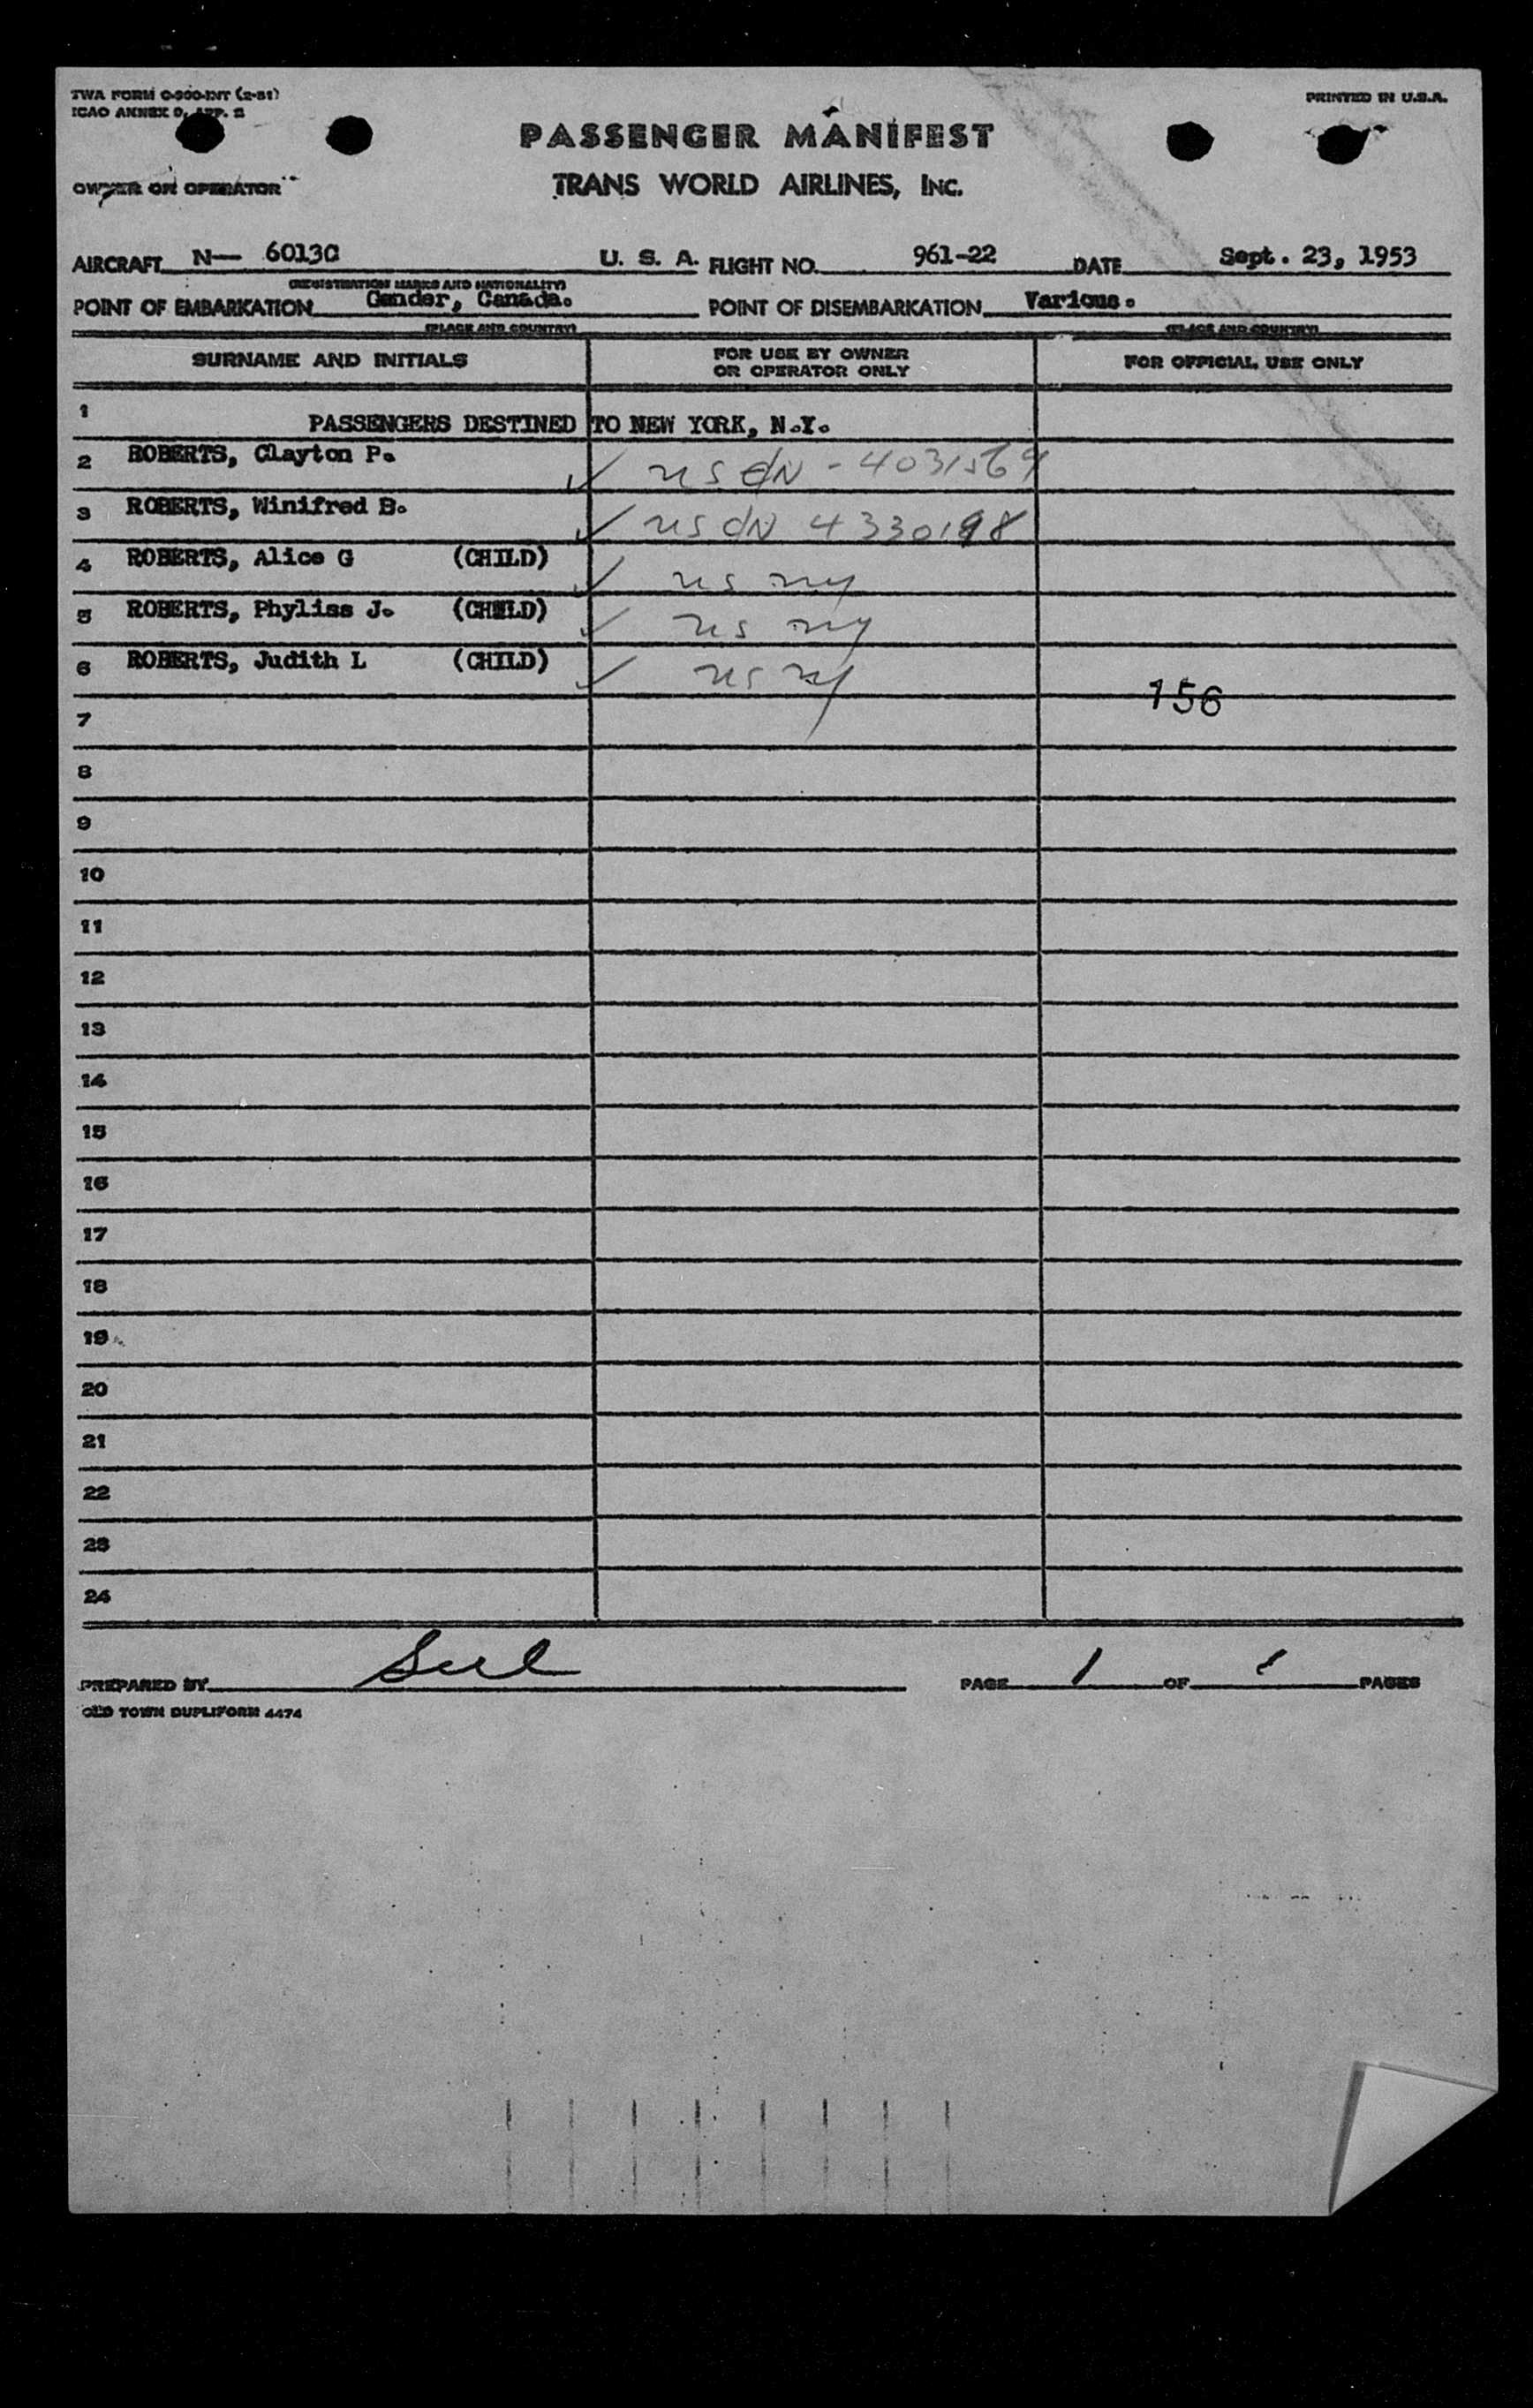 TWA FORM O-900-INT (2-51)
ICAO ANNEX 9, APP. 2
PRINTED IN U.S.A.
PASSENGER MANIFEST
OWNER OR OPERATOR
TRANS WORLD AIRLINES, INC.
AIRCRAFT N— 6013C U. S. A. FLIGHT NO. 961-22 DATE Sept. 23, 1953
(REGISTRATION MARKS AND NATIONALITY)
POINT OF EMBARKATION Gander, Canada. POINT OF DISEMBARKATION Various.
(PLACE AND COUNTRY) (PLACE AND COUNTRY)
SURNAME AND INITIALS FOR USE BY OWNER OR OPERATOR ONLY FOR OFFICIAL USE ONLY
1 PASSENGERS DESTINED TO NEW YORK, N.Y.
2 ROBERTS, Clayton P. ✓ US CN - 4031569
3 ROBERTS, Winifred B. ✓ US CN 4330198
4 ROBERTS, Alice G (CHILD) ✓ US NY
5 ROBERTS, Phyliss J. (CHILD) ✓ US NY
6 ROBERTS, Judith L (CHILD) ✓ US NY
156
7
8
9
10
11
12
13
14
15
16
17
18
19
20
21
22
23
24
PREPARED BY PAGE 1 OF 1 PAGES
OLD TOWN DUPLIFORM 4474